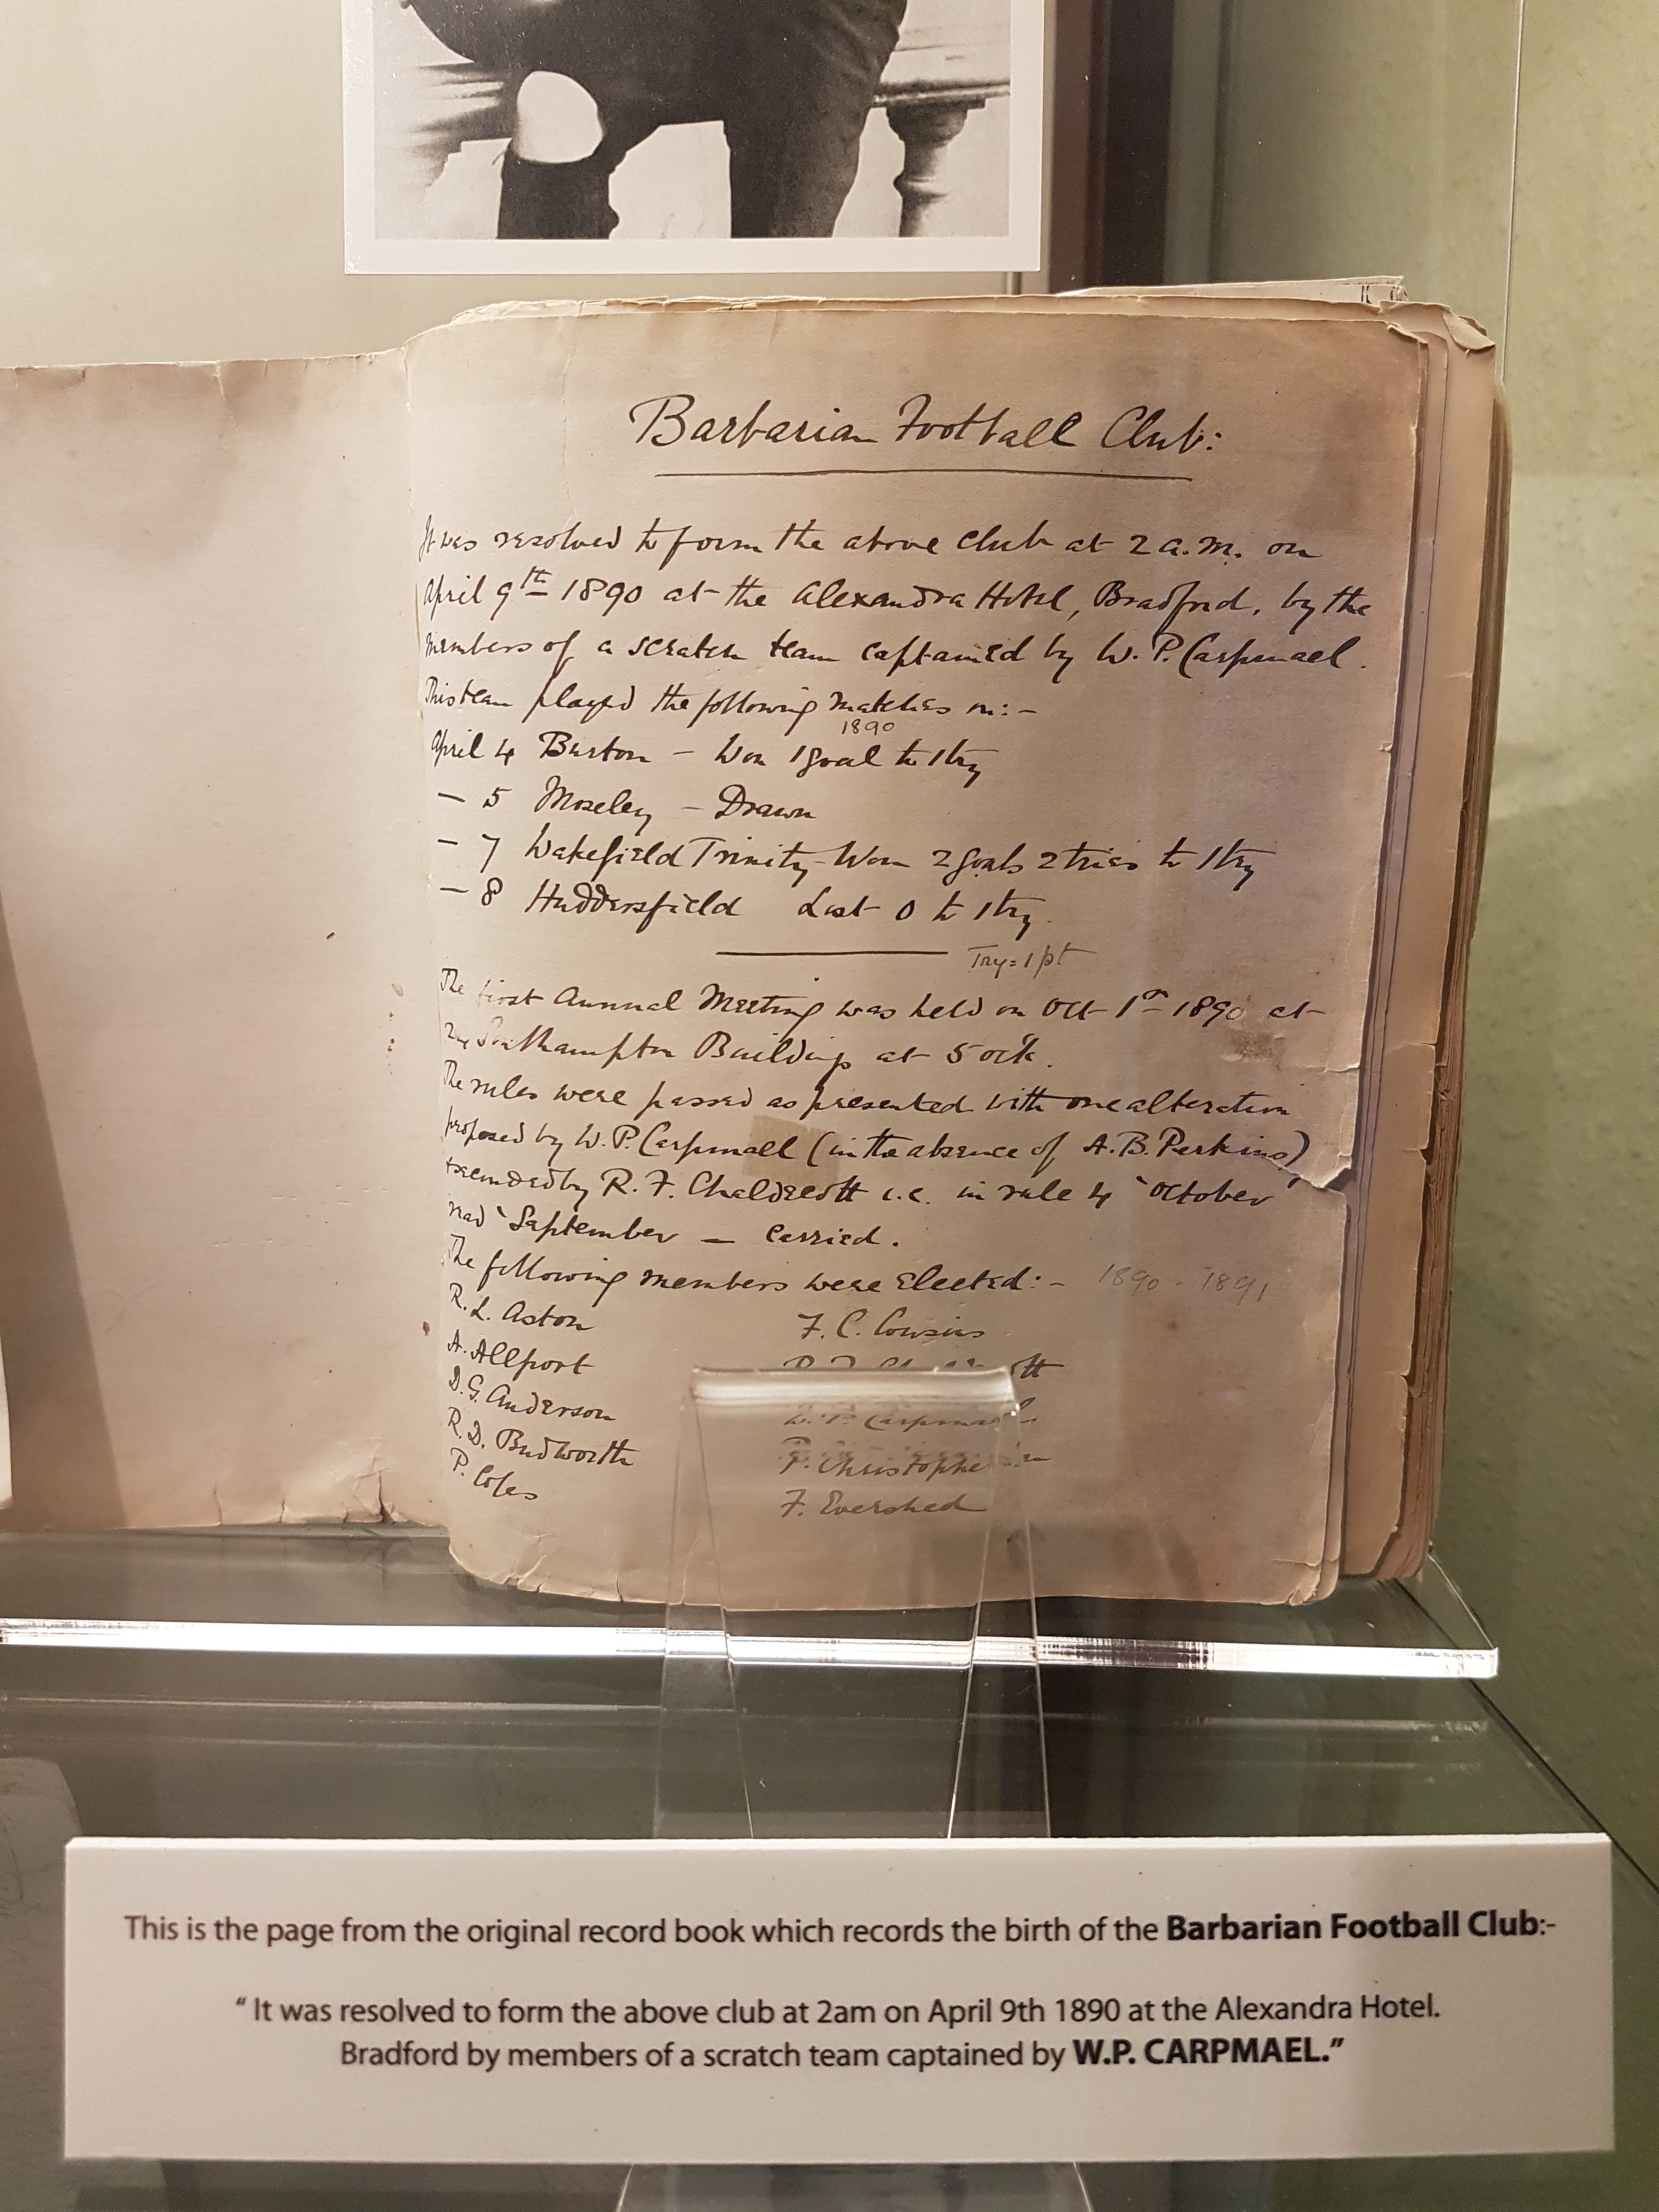 Barbarian Football Club:
It was resolved to form the above club at 2 a.m. on
April 9th 1890 at the Alexandra Hotel, Bradford, by the
members of a scratch team captained by W. P. Carpmael.
This team played the following matches on:-
1890
April 4 Burton - Won 1 goal to 1 try
- 5 Moseley - Drawn
- 7 Wakefield Trinity - Won 2 goals 2 tries to 1 try
- 8 Huddersfield Lost 0 to 1 try.
Try = 1 pt
The first Annual Meeting was held on Oct 1st 1890 at
Southampton Buildings at 5 ock.
The rules were passed as presented with one alteration
proposed by W. P. Carpmael (in the absence of A. B. Perkins)
seconded by R. F. Chaldecott i.e. in rule 4 'October'
read 'September - carried.
The following members were elected:- 1890 - 1891
R. L. Aston F. C. Cousins
A. Allport
D. G. Anderson W. P. Carpmael
R. D. Budworth P. Christopherson
P. Coles F. Evershed
This is the page from the original record book which records the birth of the Barbarian Football Club:-
“ It was resolved to form the above club at 2am on April 9th 1890 at the Alexandra Hotel.
Bradford by members of a scratch team captained by W.P. CARPMAEL.”